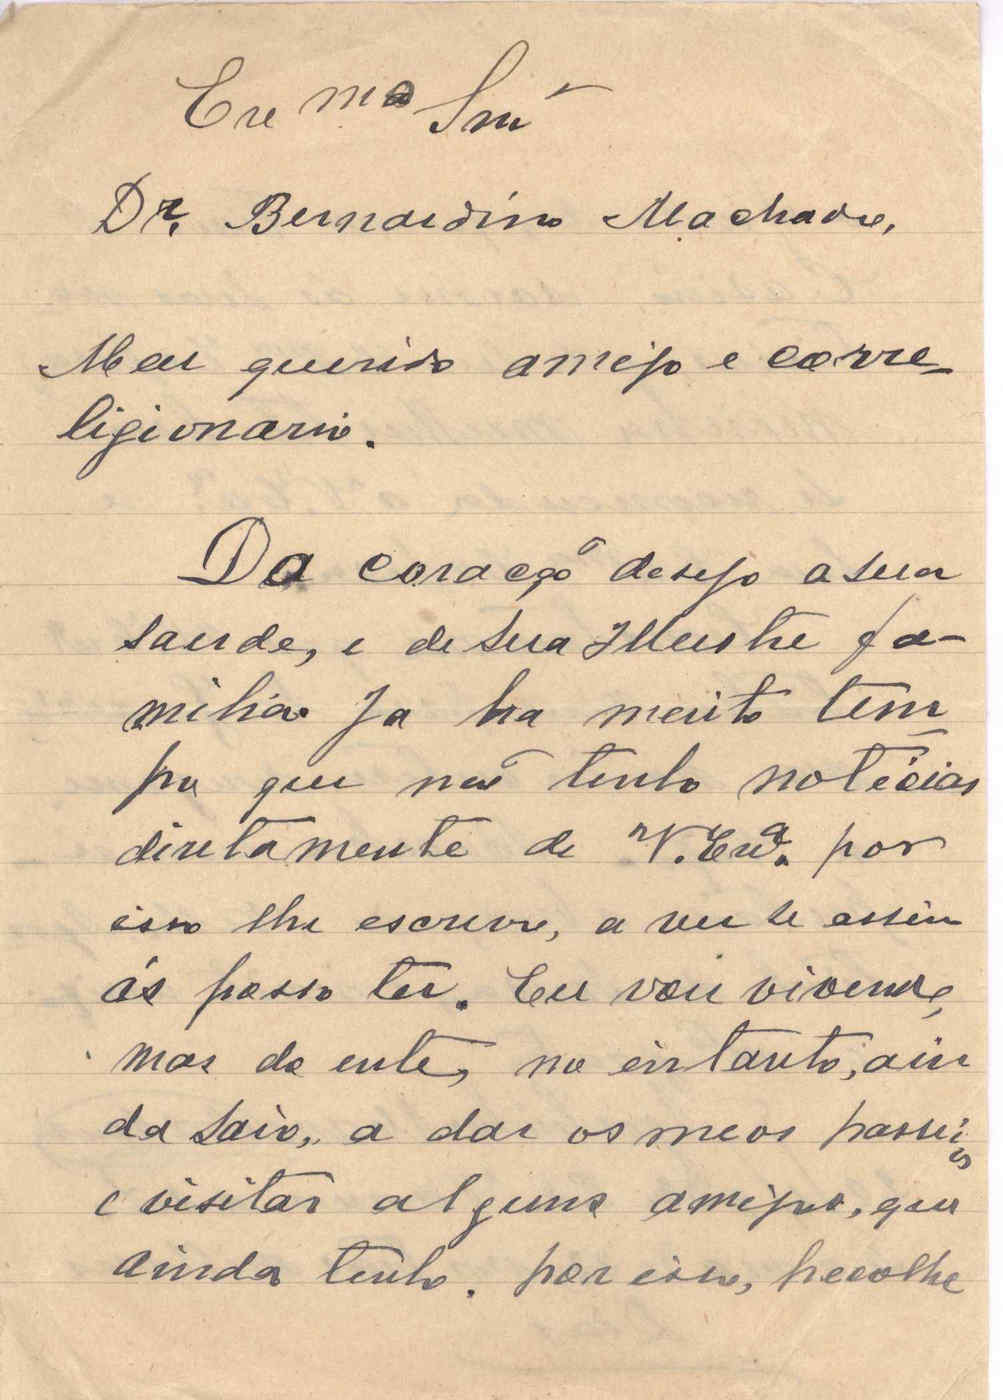 Exe mo Snr
Dr. Bernardino Machado,
Meu querido amigo e corre-
ligionario.
Do coração desejo a sua
saude, e de sua Illustre fa-
milia Ja ha muito tem
po que não tenho noticias
diretamente de V. Exa. por
isso lhe escrevo, a ver se assim
ás posso ter. Eu vou vivendo,
mas doente, no entanto, ain
da saio, a dar os meos passeios
e visitar alguns amigos, que
ainda tenho. por isso,